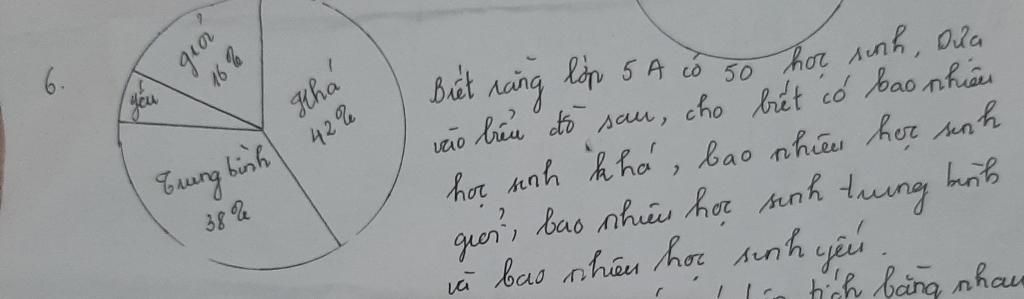 6.
giỏi
16%
yếu
Khá
42%
Trung bình
38%
Biết rằng lớp 5A có 50 học sinh. Dựa
vào biểu đồ sau, cho biết có bao nhiêu
học sinh khá, bao nhiêu học sinh
giỏi, bao nhiêu học sinh trung bình
và bao nhiêu học sinh yếu.
tích bằng nhau